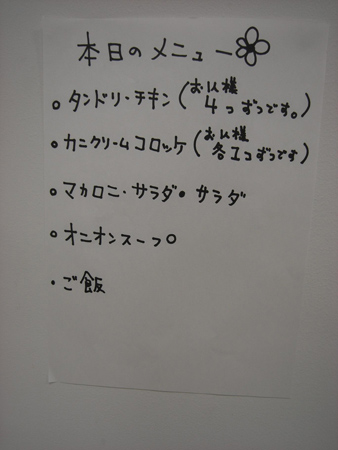 本日のメニュー
。タンドリ・チキン(お1人様4つずつです。)
。カニクリームコロッケ(お1人様各1コずつです)
。マカロニ・サラダ・サラダ
。オニオンスープ
・ご飯